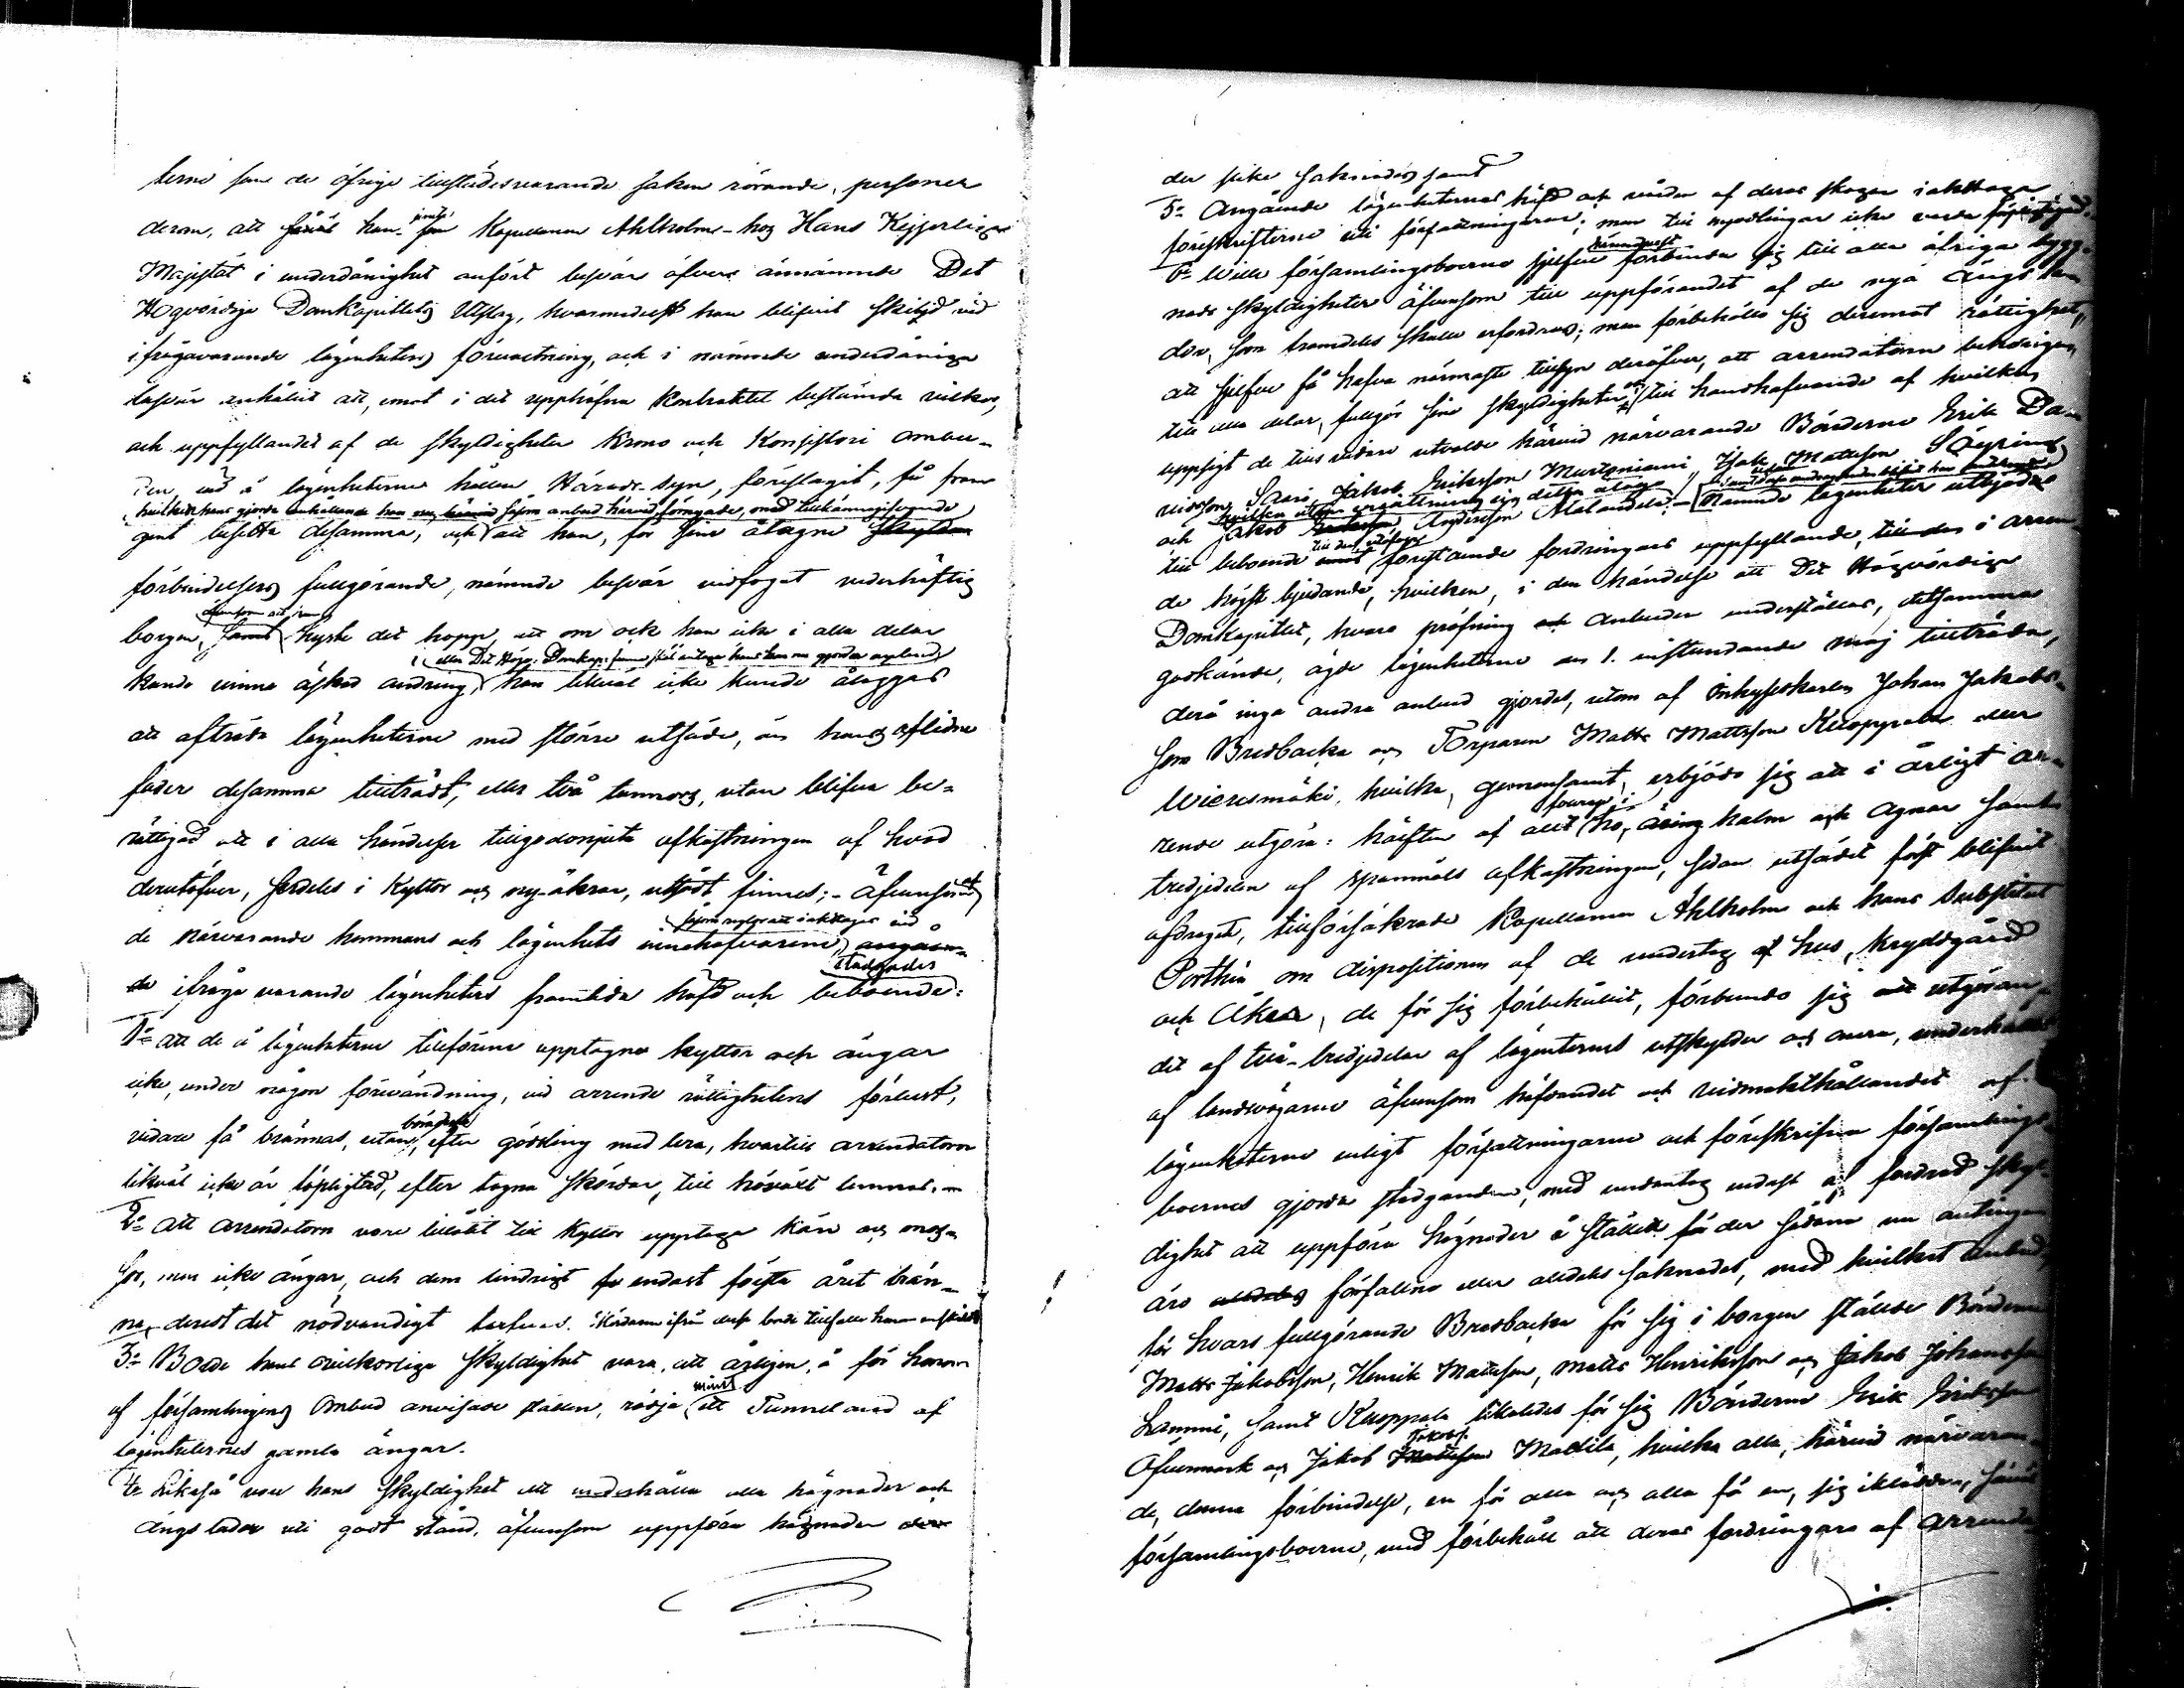 terne som de öfrige tillstädesvarande saken rörande, personer
derom, att såväl han som Kapellanen Ahlholm hos Hans Kejserliga
Majestät i underdånighet anfört besvär öfver ännämnde Det
Högvördiga Domkapitlets Utslag, hvarmedelst han blifvit skiljd vid
ifrågavarande lägenheters förvaltning, och i nämnde underdåniga
besvär anhållit att, emot i det upphäfna Kontraktet bestämda vilkor,
och uppfyllandet af de skyldigheter Krono och Konsistorii ombu-
den vid å lägenheterna hållen Härads-syn, föreslagit, få fram
gent besitta desamma, och att han, för sine åtagne
förbindelsers fullgörande, nämnde besvär vidfogat vederhäftig
borgen, samt hyste det hopp, att om ock han icke i alla delar
eller Det Högv. Domkap.
kunde vinna äskad ändring, han likväl icke kunde åläggas
att afträda lägenheterne med större utsäde, än hans aflidne
fader desamma tillträdt, eller två tunnors, utan blifva be-
rättigad att i alla händelser tillgodonjuta afkastningen af hvad
derutöfver, serdeles i Kyttor och ny-åkrar, utsådt finnes; - Äfvensom
de närvarande hemmans och lägenhets innehafvarene
stadgades
ifråga varande lägenheters framtida häfd och beboende:
1o att de å lägenheterne tillförene upptagne kyttor och ängar
icke, under någon förevändning, vid arrende rättighetens förlust,
vidare få brännas, utan, efter gödsling med lera, hvartill arrendatorn
likväl icke är förpligtad, efter tagna skördar, till höväxt lemnas. -
2o att arrendatorn vore tillåtit till Kyttor upptaga Kärr och mos-
sor, men icke ängar, och dem lindrigt endast första året brän-
na, derest det nödvändigt tarfvas.
3o Borde hans ovilkorliga skyldighet vara, att årligen, å för honom
minst
af församlingens Ombud anvisade ställen, rödja ett Tunneland af
lägenheternes gamla ängar.
4o Likaså vore hans skyldighet att underhålla alla hägnader och
ängs lador uti godt stånd, äfvensom uppföra hägnader der
der slike saknades samt
5o Angående lägenheternes häfd och vården af deras skogar iakttaga
föreskrifterne uti författningarne; men till nyodlingar icke varda
6o Wille församlingsboerne sjelfve förbinda sig till alla öfriga bygg-
nads skyldigheter äfvensom till uppförandet af de nya ängs la-
dor, som framdeles skulle erfordras; men förbehålla sig deremot rättighet,
att sjelfve få hafva närmaste tillsyn deröfver, att arrendatorn behörigen,
till alla delar, fullgör sine skyldigheter, till handhafvande af hvilken
uppsigt de tills vidare utvalde härvid närvarande Bönderne Erik Da-
vidsson Saari, Jakob Eriksson Murtoniemi, Isak Mattsson Säyring
och Jakob Andersson Alalandela. - Nämnde lägenheter utbjödos
till beboende förestående fordringars uppfyllande, i arren-
de högst bjudande, hvilken, i den händelse att Det Högvördiga
Domkapitlet, hvars pröfning anbuden underställes, detsamma
godkände, ägde lägenheterne den 1. instundande maj tillträda,
derå inga andra anbud gjordes, utom af Inhyseskarlen Johan Jakobs-
son Bredbacka och Torparen Matts Mattsson Kuoppala eller
Wieresmäki, hvilka, gemensamt, erbjödo sig att i årligt ar-
rende utgöra: hälften af allt hö, halm och agnar samt
tredjedelen af spanmåls afkastningen, sedan utsädet först blifvit
afdraget, tillförsäkrade Kapellanen Ahlholm och hans Substitut
Porthén om dispositionen af de undantag af hus, kryddgård
och Åker, de för sig förbehållit, förbundo sig utgöran-
det af två-tredjedelar af lägenternes utskylder och onera, underhållet
af landsvägarne äfvensom häfdandet och vidmakthållandet af
lägenheterne enligt författningarne och föreskrifna församlings-
boernes gjorde stadganden, med undantag endast af fordrad skyl-
dighet att uppföra hägnader å ställen der sådana nu antingen
äro förfallne eller alldeles saknades, med hvilket anbud,
för hvars fullgörande Bredbacka för sig i borgen ställde Bönderne
Matts Jakobsson, Henrik Mattsson, Matts Henriksson och Jakob Johansson
Lammi, samt Kuoppala likaledes för sig Bönderne Erik Eriksson
Åfvermark och Jakob Mattila, hvilka alla, härvid närvaran-
de, denna förbindelse, en för alla och alla för en, sig iklädde, såväl
församlingsboerne, med förbehåll att deras fordringar af arrenda-